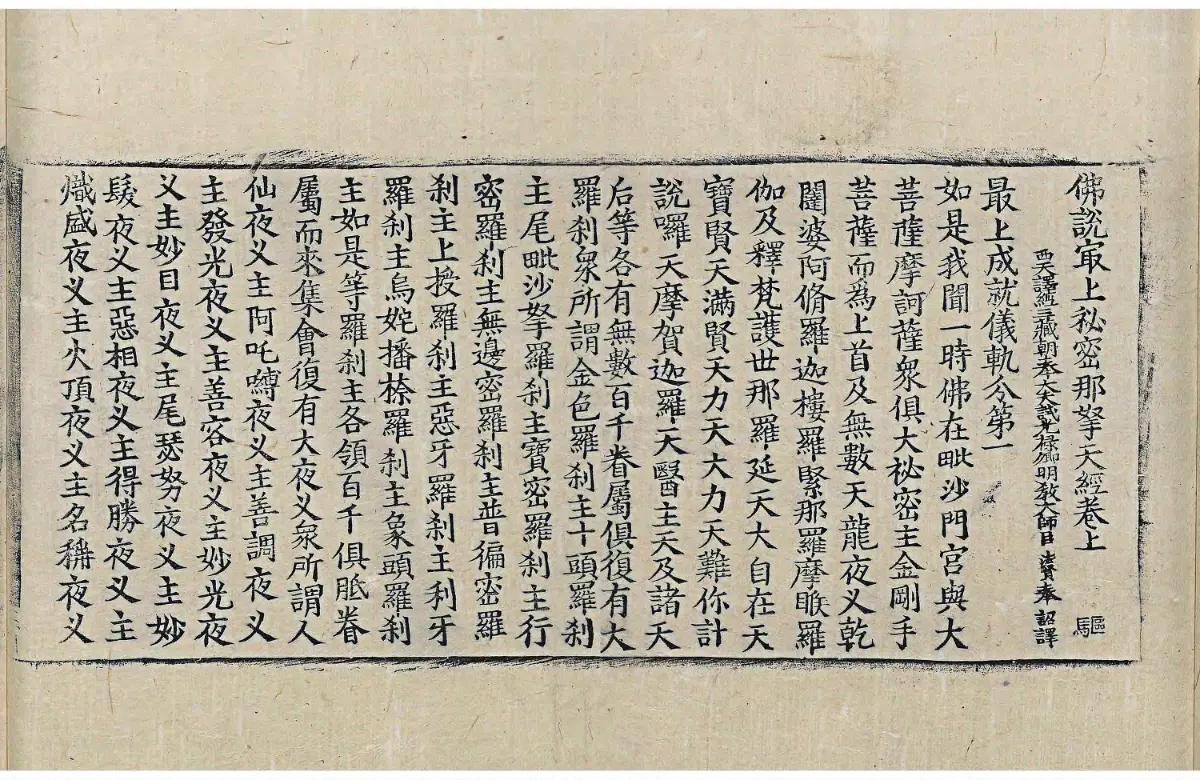 佛說㝡上秘密那拏天經卷上 驅
西天譯經三藏朝奉大夫試光祿卿明教大師臣法賢奉 詔譯
最上成就儀軌分第一
如是我聞一時佛在毗沙門宮與大
菩薩摩訶薩衆俱大秘密主金剛手
菩薩而爲上首及無數天龍夜叉乾
闥婆阿脩羅迦樓羅緊那羅摩睺羅
伽及釋梵護世那羅延天大自在天
寶賢天滿賢天力天大力天難你計
說囉天摩賀迦羅天醫主天及諸天
后等各有無數百千眷屬俱復有大
羅刹衆所謂金色羅刹主十頭羅刹
主尾毗沙拏羅刹主寶密羅刹主行
密羅刹主無邊密羅刹主普徧密羅
刹主上授羅刹主惡牙羅刹主利牙
羅刹主烏姹播捺羅刹主象頭羅刹
主如是等羅刹主各領百千俱胝眷
屬而來集會復有大夜叉衆所謂人
仙夜叉主阿吒嚩夜叉主善調夜叉
主發光夜叉主善容夜叉主妙光夜
叉主妙目夜叉主尾瑟努夜叉主妙
髮夜叉主惡相夜叉主得勝夜叉主
熾盛夜叉主火頂夜叉主名稱夜叉